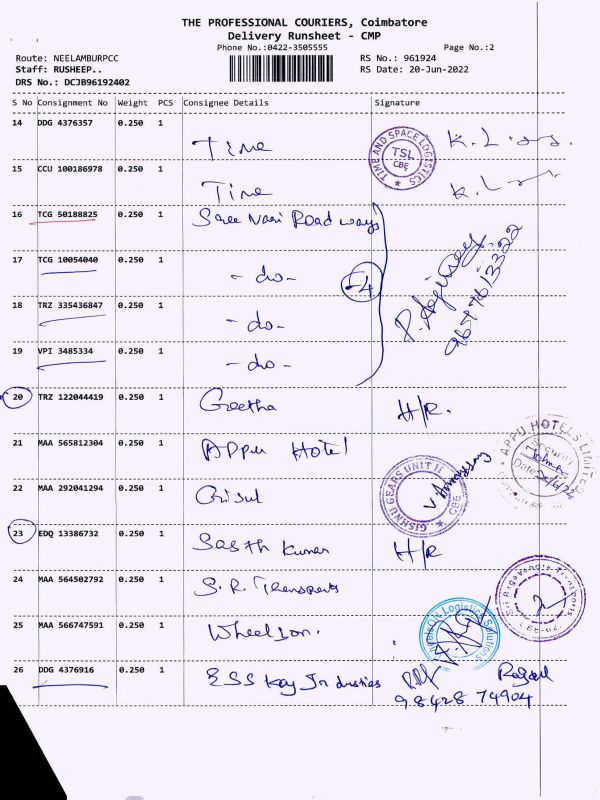 THE PROFESSIONAL COURIERS, Coimbatore
Delivery Runsheet - CMP
Phone No.:0422-3505555 Page No.:2
Route: NEELAMBURPCC RS No.: 961924
Staff: RUSHEEP.. RS Date: 20-Jun-2022
DRS No.: DCJB96192402
S No Consignment No Weight PCS Consignee Details Signature
14 DDG 4376357 0.250 1 Time
TIME AND SPACE LOGISTICS TSL CBE
15 CCU 100186978 0.250 1 Time
16 TCG 50188825 0.250 1 Sree Nari Road ways
17 TCG 10054040 0.250 1 - do -
4
18 TRZ 335436847 0.250 1 - do -
19 VPI 3485334 0.250 1 - do -
20 TRZ 122044419 0.250 1 Geetha H/R.
21 MAA 565812304 0.250 1 APPU Hotel
APPU HOTELS LIMITED Security Date
22 MAA 292041294 0.250 1
GISHNU GEARS UNIT II CBE
23 EDQ 13386732 0.250 1 Sasth Kumar H/R
24 MAA 564502792 0.250 1 S.R. Transports
25 MAA 566747591 0.250 1 Wheelson.
Logistics Solutions
26 DDG 4376916 0.250 1 ESS Kay Industries
98428 74904